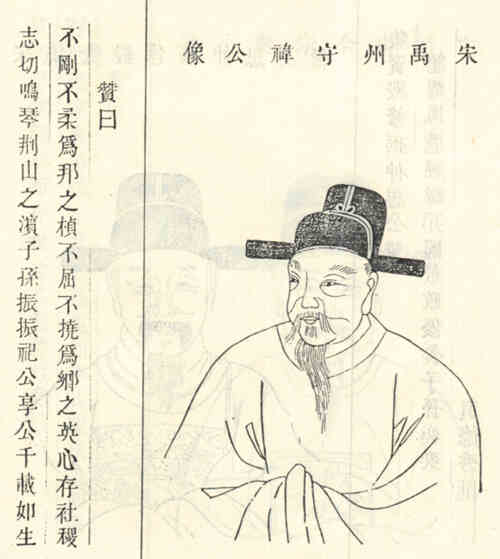 宋禹州守禕公像
贊曰
不剛不柔爲那之楨不屈不撓爲鄉之英心存社稷
志切鳴琴荆山之濱子孫振振祀公享公千載如生